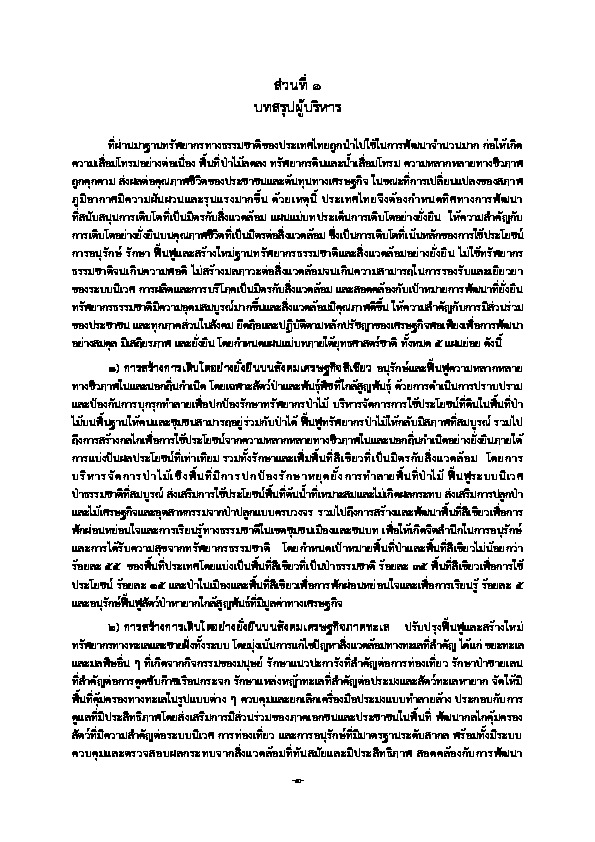 ส่วนที่ ๑
บทสรุปผู้บริหาร
ที่ผ่านมาฐานทรัพยากรทางธรรมชาติของประเทศไทยถูกนำไปใช้ในการพัฒนาจำนวนมาก ก่อให้เกิด
ความเสื่อมโทรมอย่างต่อเนื่อง พื้นที่ป่าไม้ลดลง ทรัพยากรดินและน้ำเสื่อมโทรม ความหลากหลายทางชีวภาพ
ถูกคุกคาม ส่งผลต่อคุณภาพชีวิตของประชาชนและต้นทุนทางเศรษฐกิจ ในขณะที่การเปลี่ยนแปลงของสภาพ
ภูมิอากาศมีความผันผวนและรุนแรงมากขึ้น ด้วยเหตุนี้ ประเทศไทยจึงต้องกำหนดทิศทางการพัฒนา
ที่สนับสนุนการเติบโตที่เป็นมิตรกับสิ่งแวดล้อม แผนแม่บทประเด็นการเติบโตอย่างยั่งยืน ให้ความสำคัญกับ
การเติบโตอย่างยั่งยืนบนคุณภาพชีวิตที่เป็นมิตรต่อสิ่งแวดล้อม ซึ่งเป็นการเติบโตที่เน้นหลักของการใช้ประโยชน์
การอนุรักษ์ รักษา ฟื้นฟูและสร้างใหม่ฐานทรัพยากรธรรมชาติและสิ่งแวดล้อมอย่างยั่งยืน ไม่ใช้ทรัพยากร
ธรรมชาติจนเกินความพอดี ไม่สร้างมลภาวะต่อสิ่งแวดล้อมจนเกินความสามารถในการรองรับและเยียวยา
ของระบบนิเวศ การผลิตและการบริโภคเป็นมิตรกับสิ่งแวดล้อม และสอดคล้องกับเป้าหมายการพัฒนาที่ยั่งยืน
ทรัพยากรธรรมชาติมีความอุดมสมบูรณ์มากขึ้นและสิ่งแวดล้อมมีคุณภาพดีขึ้น ให้ความสำคัญกับการมีส่วนร่วม
ของประชาชน และทุกภาคส่วนในสังคม ยึดถือและปฏิบัติตามหลักปรัชญาของเศรษฐกิจพอเพียงเพื่อการพัฒนา
อย่างสมดุล มีเสถียรภาพ และยั่งยืน โดยกำหนดแผนแม่บทภายใต้ยุทธศาสตร์ชาติ ทั้งหมด ๕ แผนย่อย ดังนี้
๑) การสร้างการเติบโตอย่างยั่งยืนบนสังคมเศรษฐกิจสีเขียว อนุรักษ์และฟื้นฟูความหลากหลาย
ทางชีวภาพในและนอกถิ่นกำเนิด โดยเฉพาะสัตว์ป่าและพันธุ์พืชที่ใกล้สูญพันธุ์ ด้วยการดำเนินการปราบปราม
และป้องกันการบุกรุกทำลายเพื่อปกป้องรักษาทรัพยากรป่าไม้ บริหารจัดการการใช้ประโยชน์ที่ดินในพื้นที่ป่า
ไม้บนพื้นฐานให้คนและชุมชนสามารถอยู่ร่วมกับป่าได้ ฟื้นฟูทรัพยากรป่าไม้ให้กลับมีสภาพที่สมบูรณ์ รวมไป
ถึงการสร้างกลไกเพื่อการใช้ประโยชน์จากความหลากหลายทางชีวภาพในและนอกถิ่นกำเนิดอย่างยั่งยืนภายใต้
การแบ่งปันผลประโยชน์ที่เท่าเทียม รวมทั้งรักษาและเพิ่มพื้นที่สีเขียวที่เป็นมิตรกับสิ่งแวดล้อม โดยการ
บริหารจัดการป่าไม้เชิงพื้นที่มีการปกป้องรักษาหยุดยั้งการทำลายพื้นที่ป่าไม้ ฟื้นฟูระบบนิเวศ
ป่าธรรมชาติที่สมบูรณ์ ส่งเสริมการใช้ประโยชน์พื้นที่ต้นน้ำที่เหมาะสมและไม่เกิดผลกระทบ ส่งเสริมการปลูกป่า
และไม้เศรษฐกิจและอุตสาหกรรมจากป่าปลูกแบบครบวงจร รวมไปถึงการสร้างและพัฒนาพื้นที่สีเขียวเพื่อการ
พักผ่อนหย่อนใจและการเรียนรู้ทางธรรมชาติในเขตชุมชนเมืองและชนบท เพื่อให้เกิดจิตสำนึกในการอนุรักษ์
และการได้รับความสุขจากทรัพยากรธรรมชาติ โดยกำหนดเป้าหมายพื้นที่ป่าและพื้นที่สีเขียวไม่น้อยกว่า
ร้อยละ ๕๕ ของพื้นที่ประเทศโดยแบ่งเป็นพื้นที่สีเขียวที่เป็นป่าธรรมชาติ ร้อยละ ๓๕ พื้นที่สีเขียวเพื่อการใช้
ประโยชน์ ร้อยละ ๑๕ และป่าในเมืองและพื้นที่สีเขียวเพื่อการพักผ่อนหย่อนใจและเพื่อการเรียนรู้ ร้อยละ ๕
และอนุรักษ์ฟื้นฟูสัตว์ป่าหายากใกล้สูญพันธุ์ที่มีมูลค่าทางเศรษฐกิจ
๒) การสร้างการเติบโตอย่างยั่งยืนบนสังคมเศรษฐกิจภาคทะเล ปรับปรุงฟื้นฟูและสร้างใหม่
ทรัพยากรทางทะเลและชายฝั่งทั้งระบบ โดยมุ่งเน้นการแก้ไขปัญหาสิ่งแวดล้อมทางทะเลที่สำคัญ ได้แก่ ขยะทะเล
และมลพิษอื่น ๆ ที่เกิดจากกิจกรรมของมนุษย์ รักษาแนวปะการังที่สำคัญต่อการท่องเที่ยว รักษาป่าชายเลน
ที่สำคัญต่อการดูดซับก๊าซเรือนกระจก รักษาแหล่งหญ้าทะเลที่สำคัญต่อประมงและสัตว์ทะเลหายาก จัดให้มี
พื้นที่คุ้มครองทางทะเลในรูปแบบต่าง ๆ ควบคุมและยกเลิกเครื่องมือประมงแบบทำลายล้าง ประกอบกับการ
ดูแลที่มีประสิทธิภาพโดยส่งเสริมการมีส่วนร่วมของภาคเอกชนและประชาชนในพื้นที่ พัฒนากลไกคุ้มครอง
สัตว์ที่มีความสำคัญต่อระบบนิเวศ การท่องเที่ยว และการอนุรักษ์ที่มีมาตรฐานระดับสากล พร้อมทั้งมีระบบ
ควบคุมและตรวจสอบผลกระทบจากสิ่งแวดล้อมที่ทันสมัยและมีประสิทธิภาพ สอดคล้องกับการพัฒนา
-๑-